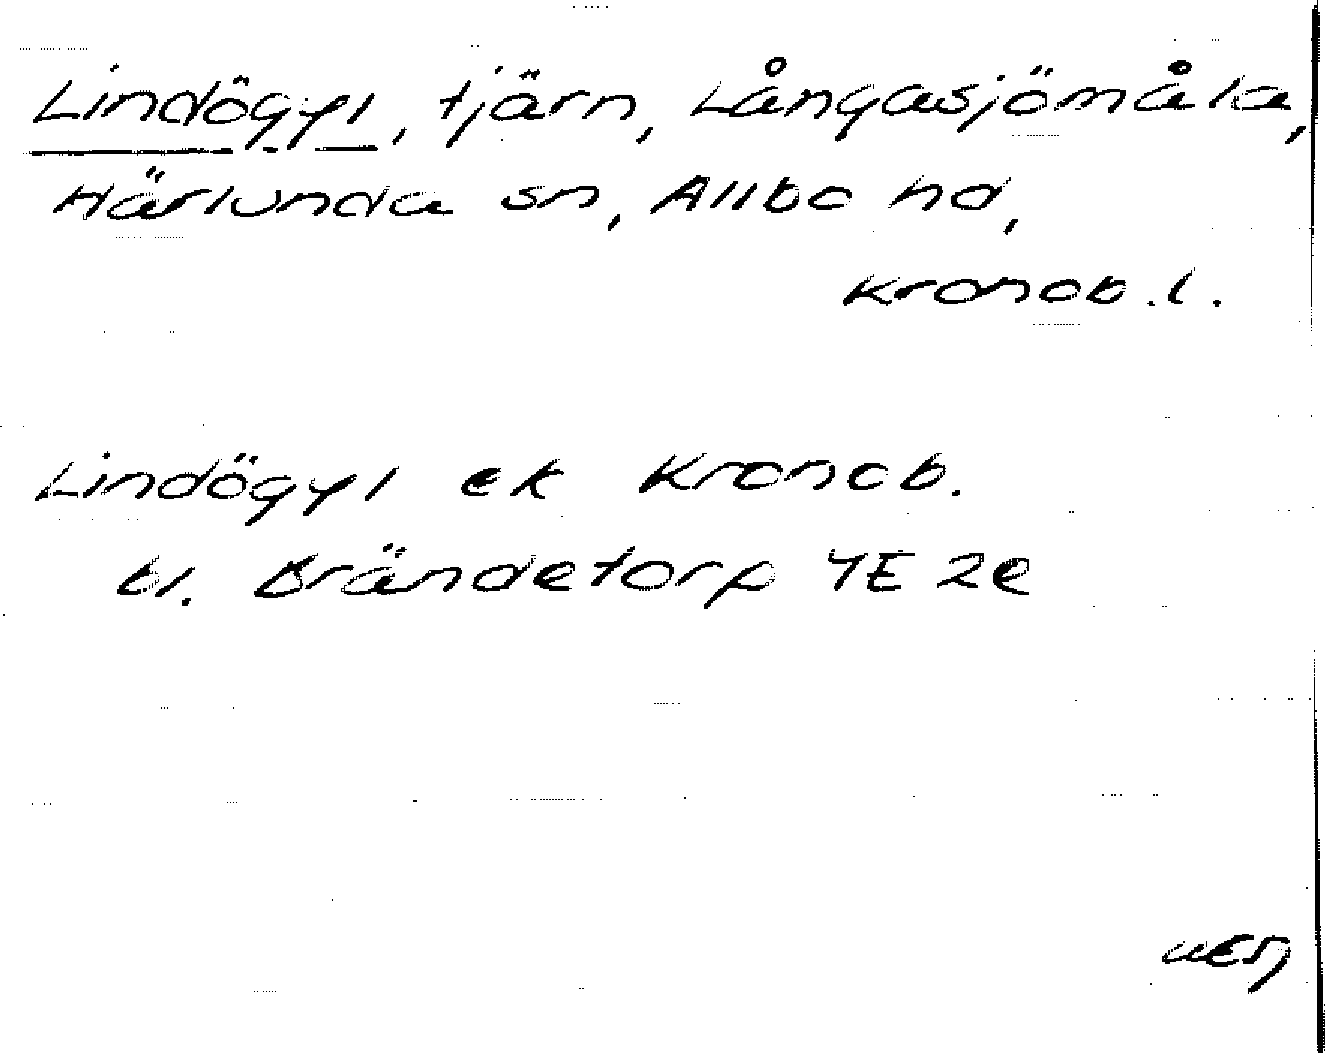 Lindögyl, tjärn, Långasjömåla,
Härlunda sn, Allbo hd,
Kronob. l.
Lindögyl ek Kronob.
bl. Brändetorp 4E 2e